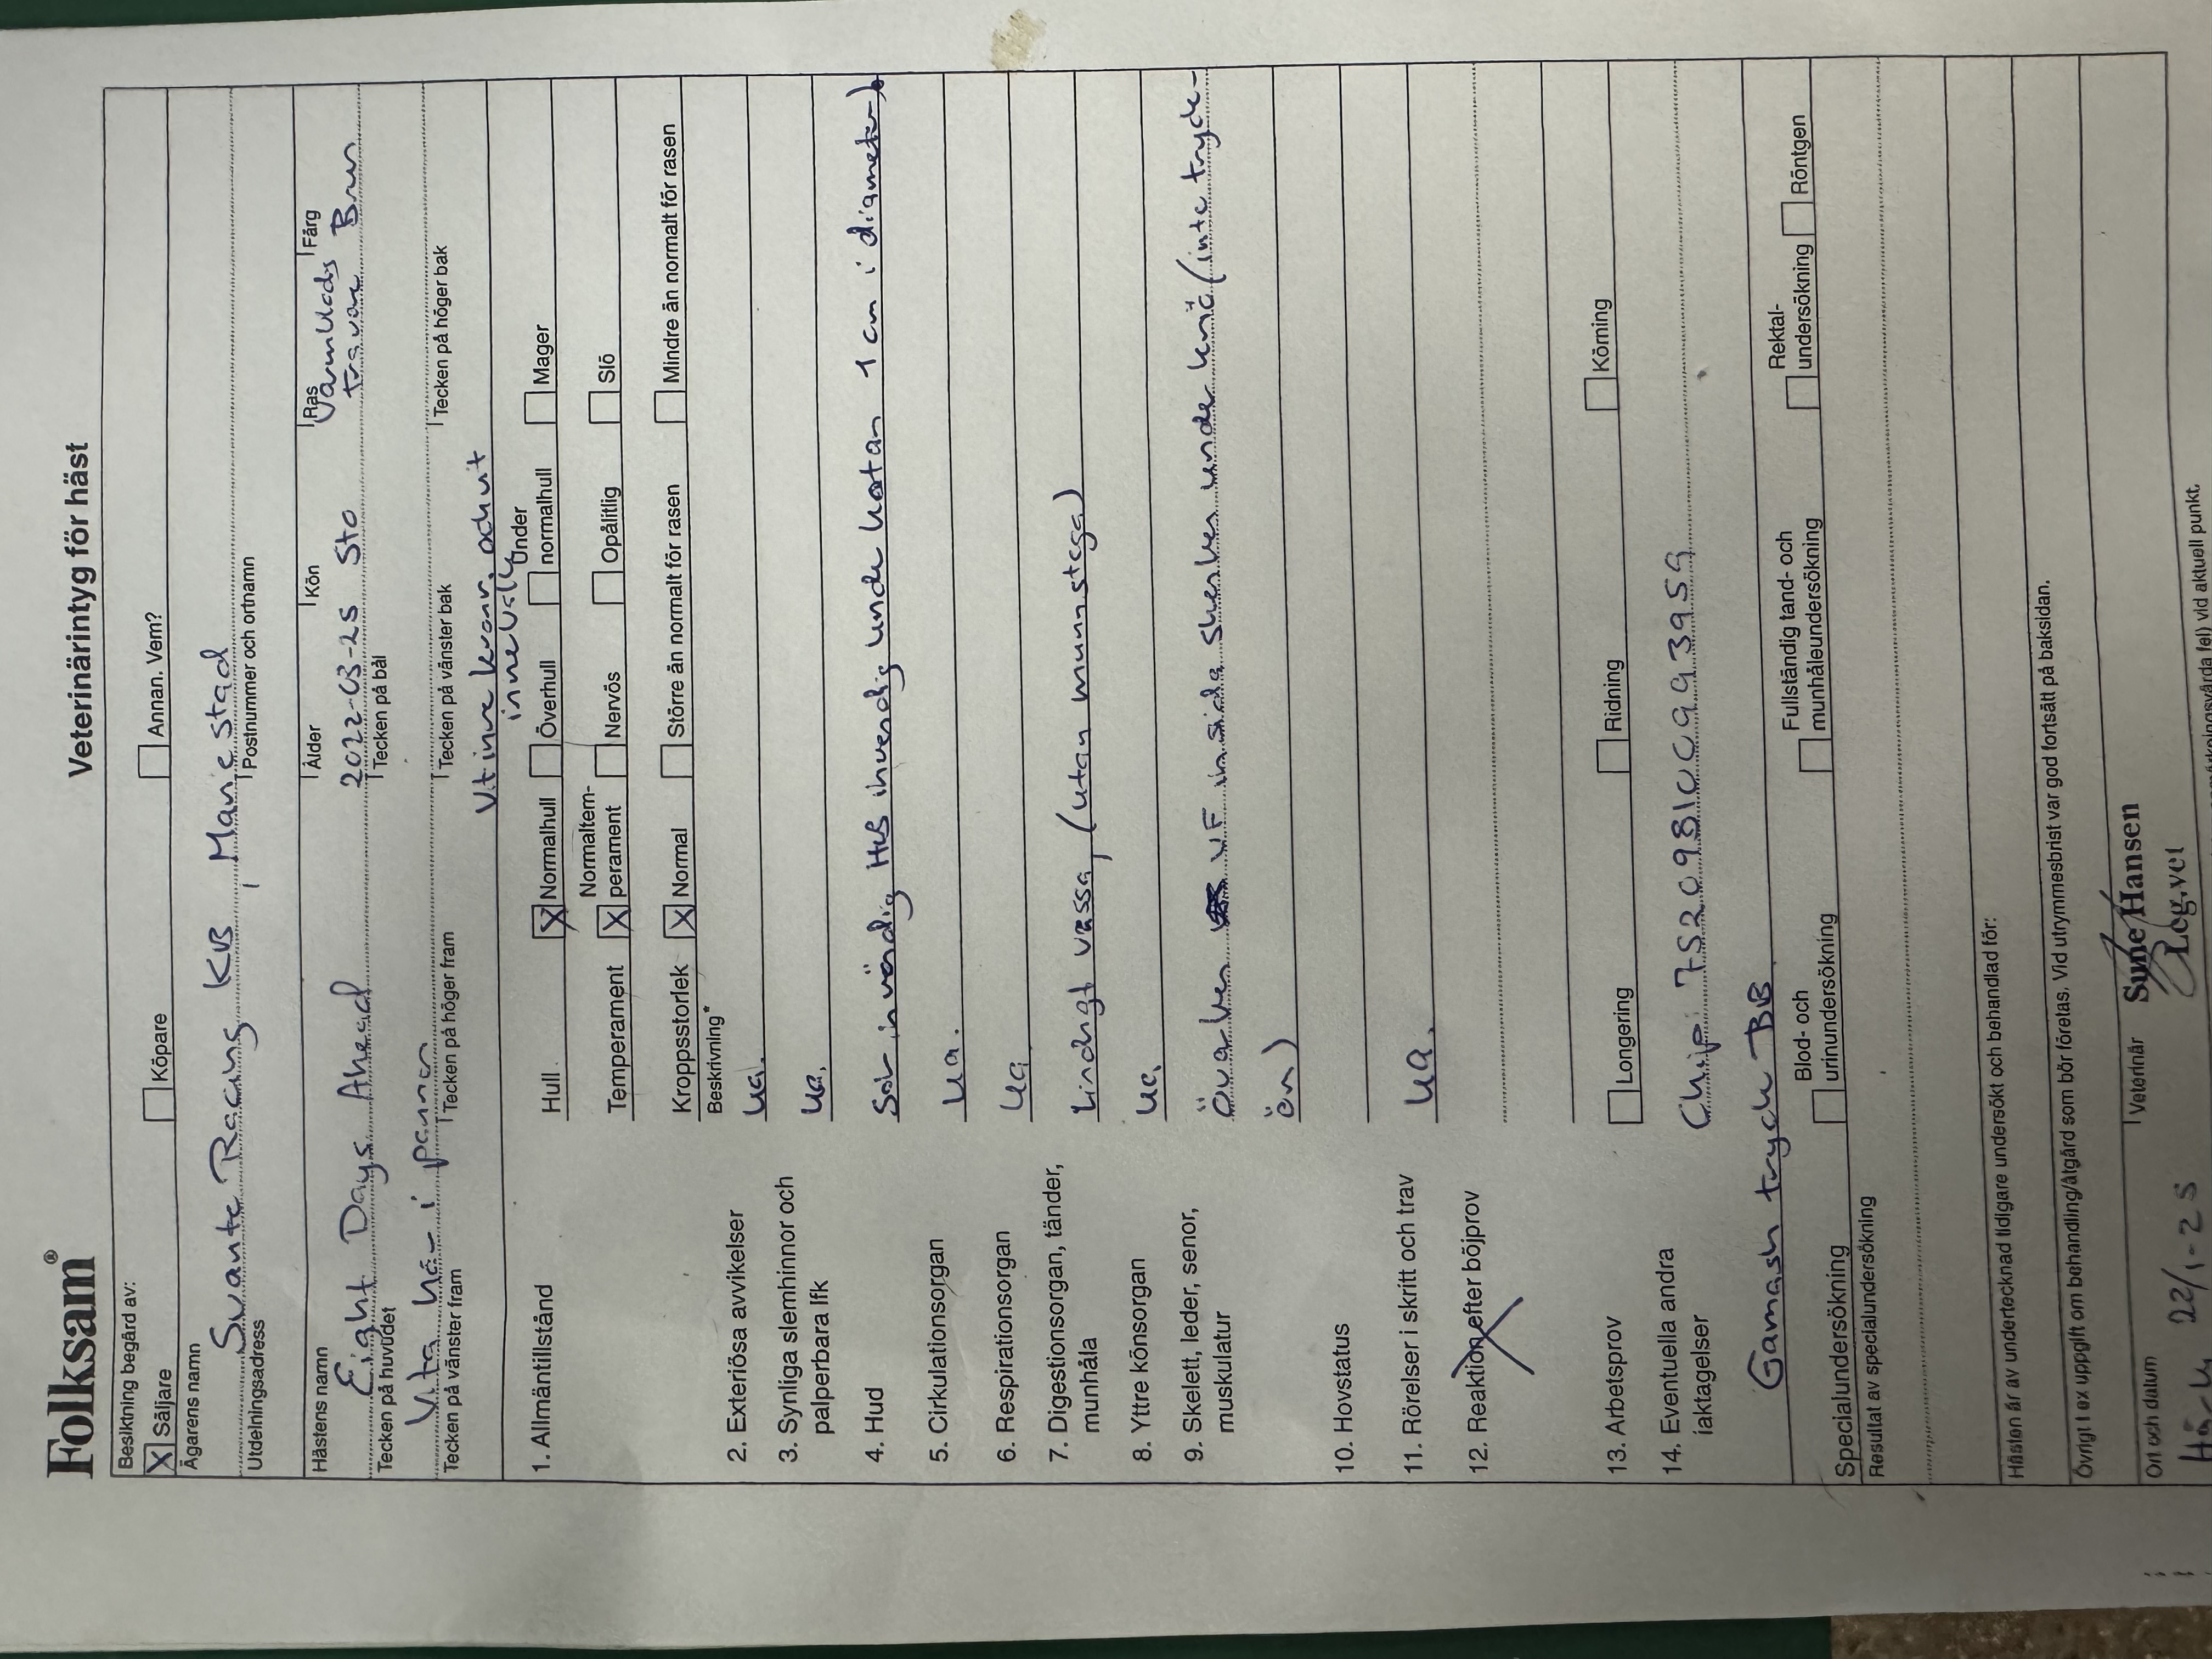 Folksam®
Veterinärintyg för häst
Besiktning begärd av:
X Säljare
Köpare
Annan. Vem?
Ägarens namn
Svante Racing KB, Mariestad
Utdelningsadress
Postnummer och ortnamn
Hästens namn
Ålder
Kön
Ras
Färg
Eight Days Ahead
2022-03-25
Sto
Varmblods
travare
Brun
Tecken på huvudet
Tecken på bål
Vita hår i pannan
Tecken på vänster fram
Tecken på höger fram
Tecken på vänster bak
Tecken på höger bak
Vit inre kron. och vit
1. Allmäntillstånd
Hull
X Normalhull
Överhull
Under
normalhull
Mager
Temperament
X Normaltem-
perament
Nervös
Opålitlig
Slö
Kroppsstorlek
X Normal
Större än normalt för rasen
Mindre än normalt för rasen
Beskrivning*
2. Exteriösa avvikelser
ua.
3. Synliga slemhinnor och
palperbara lfk
ua.
4. Hud
Sår invändig HB invendig under kotan 1 cm i diameter)
5. Cirkulationsorgan
ua.
6. Respirationsorgan
ua
7. Digestionsorgan, tänder,
munhåla
Lindrigt vassa, (utan munstega)
8. Yttre könsorgan
ua.
9. Skelett, leder, senor,
muskulatur
Överben VF insida skenben under knä (inte tryck-
öm)
10. Hovstatus
11. Rörelser i skritt och trav
ua.
12. Reaktion efter böjprov
13. Arbetsprov
Longering
Ridning
Körning
14. Eventuella andra
iakttagelser
Chip: 752098100993959
Gamash tryck BB
Specialundersökning
Blod- och
urinundersökning
Fullständig tand- och
munhåleundersökning
Rektal-
undersökning
Röntgen
Resultat av specialundersökning
Hästen är av undertecknad tidigare undersökt och behandlad för:
Övrigt t ex uppgift om behandling/åtgärd som bör företas. Vid utrymmesbrist var god fortsätt på baksidan.
Ort och datum
Veterinär
22/1-25
Sune Hansen
Leg.vet
vid aktuell punkt.